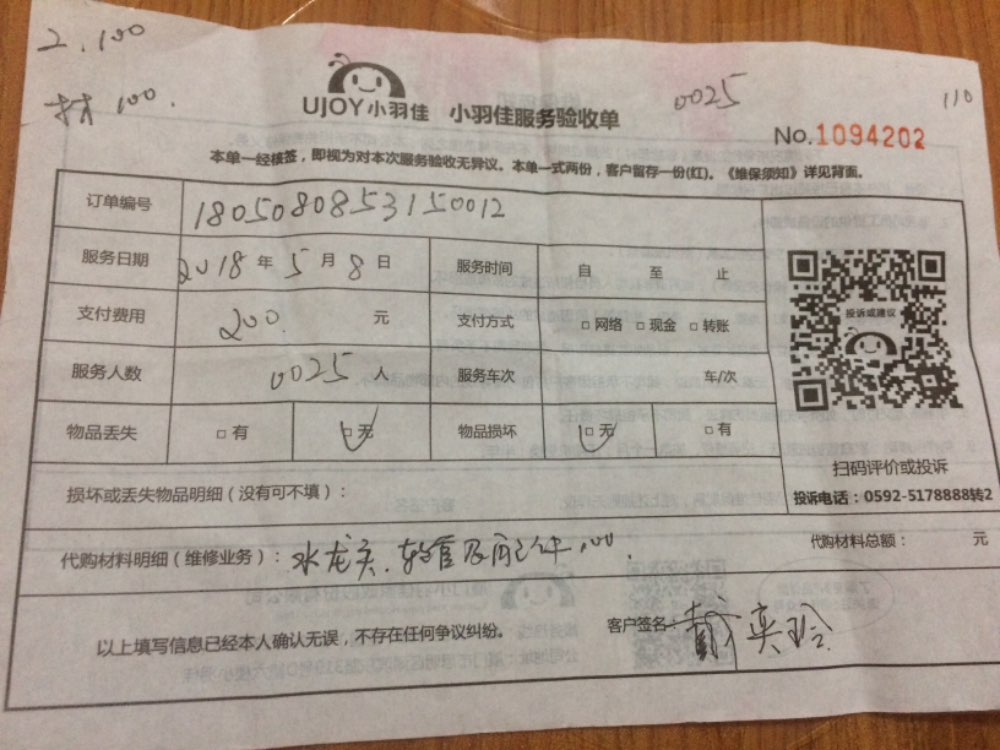 工.100
材 100.
UJOY小羽佳 小羽佳服务验收单
0025
110
No.1094202
本单一经核签，即视为对本次服务验收无异议。本单一式两份，客户留存一份(红)。《维保须知》详见背面。
订单编号 180508085315​0012
服务日期 2018 年 5 月 8 日 服务时间 自 至 止
支付费用 200. 元 支付方式 □网络 □现金 □转账
服务人数 0025 人 服务车次 车/次
物品丢失 □有 □无 物品损坏 □无 □有
投诉或建议
扫码评价或投诉
投诉电话：0592-5178888转2
损坏或丢失物品明细（没有可不填）：
代购材料明细（维修业务）：水龙头.软管及配件100. 代购材料总额： 元
以上填写信息已经本人确认无误，不存在任何争议纠纷。 客户签名：戴奕玲